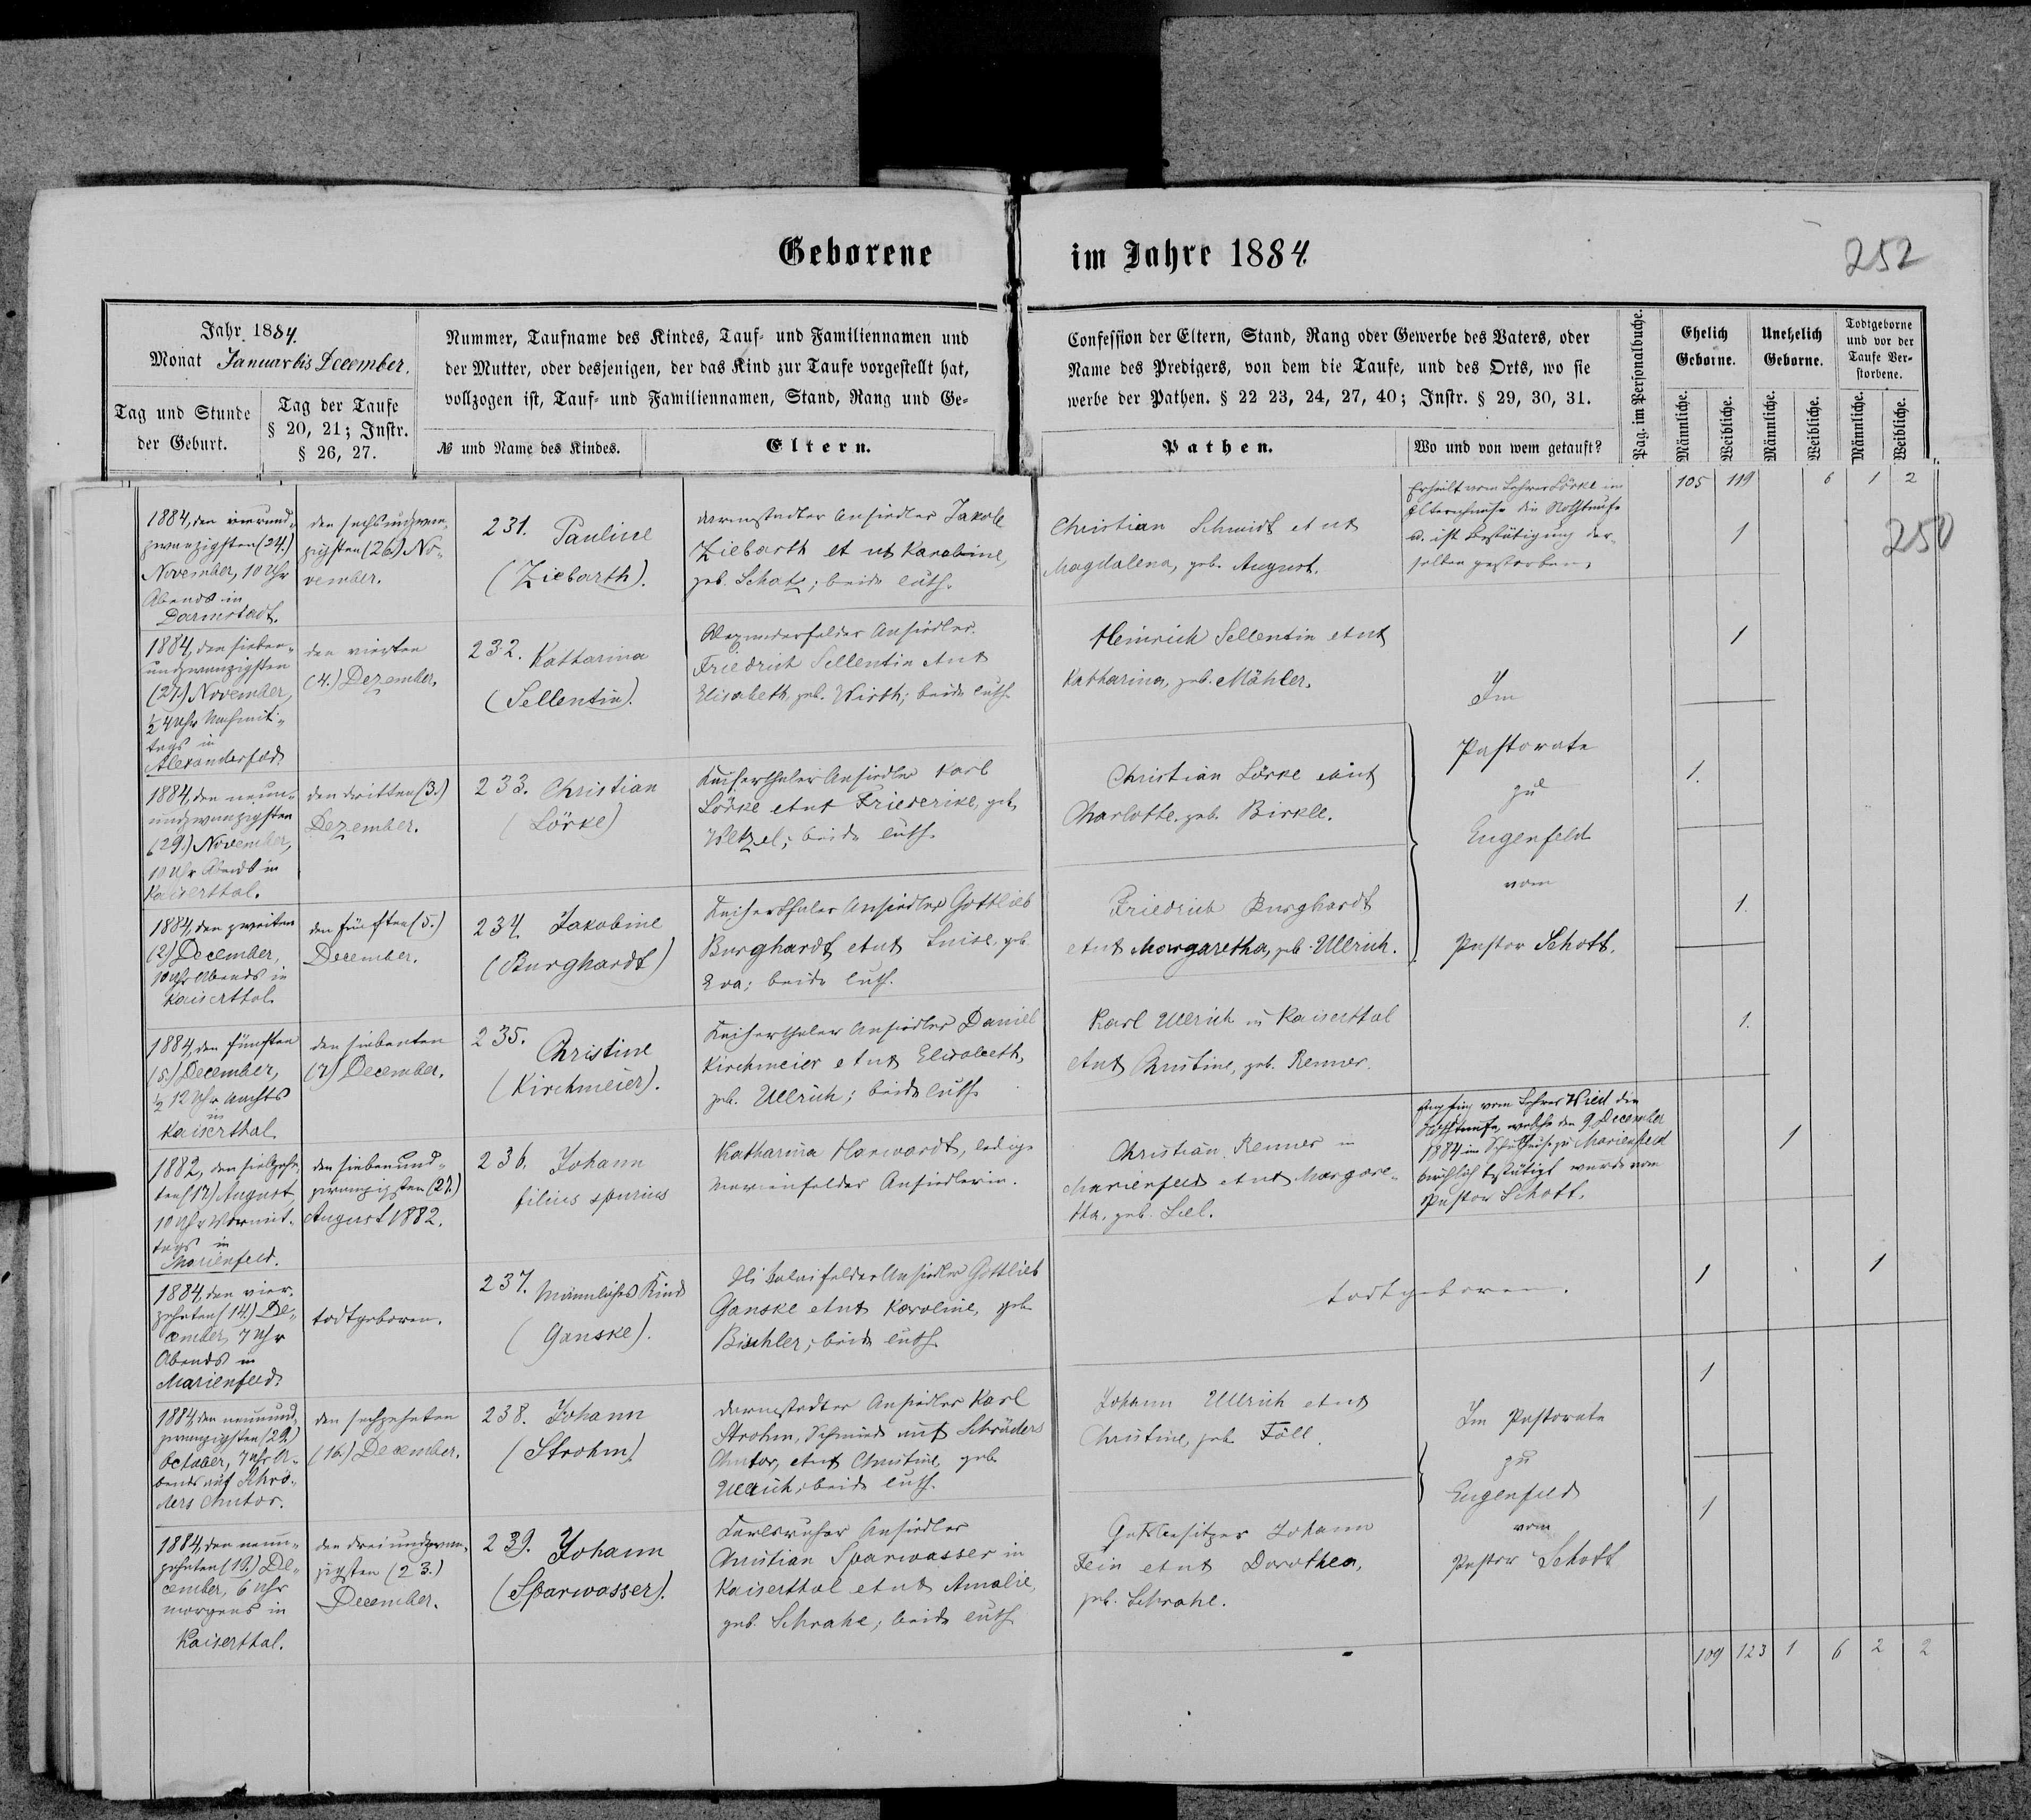 Geborene im Jahre 1884.
252
Jahr 1884.
Monat Januar bis December.
Tag und Stunde
der Geburt.
Tag der Taufe
§ 20, 21; Instr.
§ 26, 27.
Nummer, Taufname des Kindes, Tauf- und Familiennamen und
der Mutter, oder desjenigen, der das Kind zur Taufe vorgestellt hat,
vollzogen ist, Tauf- und Familiennamen, Stand, Rang und Ge-
№ und Name des Kindes.
Eltern.
Confession der Eltern, Stand, Rang oder Gewerbe des Vaters, oder
Name des Predigers, von dem die Taufe, und des Orts, wo sie
werbe der Pathen. § 22 23, 24, 27, 40; Instr. § 29, 30, 31.
Pathen.
Wo und von wem getauft?
Pag. im Personalbuche.
Ehelich
Geborne.
Unehelich
Geborne.
Todtgeborne
und vor der
Taufe Ver-
storbene.
Männliche.
Weibliche.
Männliche.
Weibliche.
Männliche.
Weibliche.
105 119 6 1 2
250
1884, den vierund-
zwanzigsten (24.)
November, 10 Uhr
Abends in
Darmstadt.
den sechsundzwan-
zigsten (26.) No-
vember.
231. Pauline
(Ziebarth).
Darmstadter Ansiedler Jakob
Ziebarth et ux Karoline,
geb. Schatz; beide luth.
Christian Schmidt et ux
Magdalena, geb. August.
Erhielt vom Lehrer Lörke im
Elternhause die Nothtaufe
u. ist Bestätigung der-
selben gestorben.
1
1884, den sieben-
undzwanzigsten
(27.) November,
½ 4 Uhr Nachmit-
tags in
Alexanderfeld.
den vierten
(4.) Dezember.
232. Katharina
(Sellentin).
Alexanderfelder Ansiedler
Friedrich Sellentin et ux
Elisabeth, geb. Wirth; beide luth.
Heinrich Sellentin et ux
Katharina, geb. Mähler.
1
1884, den neun-
undzwanzigsten
(29.) November,
10 Uhr Abends in
Kaiserthal.
den dritten (3.)
Dezember.
233. Christian
(Lörke)
Kaiserthaler Ansiedler Karl
Lörke et ux Friederike, geb.
Wetzel; beide luth.
Christian Lörke et ux
Charlotte, geb. Birkle.
Im
Pastorate
zu
Eugenfeld
vom
Pastor Schott.
1.
1884, den zweiten
(2.) December,
10 Uhr Abends in
Kaiserthal.
den fünften (5.)
December.
234. Jakobine
(Burghardt)
Kaiserthaler Ansiedler Gottlieb
Burghardt et ux Luise, geb.
Eva; beide luth.
Friedrich Burghardt
et ux Margaretha, geb. Ullrich.
1.
1884, den fünften
(5.) December,
½ 12 Uhr Nachts
in
Kaiserthal
den siebenten
(7.) December.
235. Christine
(Kirchmeier).
Kaiserthaler Ansiedler Daniel
Kirchmeier et ux Elisabeth,
geb. Ullrich; beide luth.
Karl Ullrich in Kaiserthal
et ux Christine, geb. Renner.
1.
1882, den siebzehn-
ten (17.) August
10 Uhr Vormit-
tags in
Marienfeld.
den siebenund-
zwanzigsten (27.)
August 1882.
236. Johann
filius spurius
Katharina Harwardt, ledige
Marienfelder Ansiedlerin.
Christian Renner in
Marienfeld et ux Margare-
tha, geb.
Empfing vom Lehrer Wied die
Nothtaufe, welche den 9. December
1884 im Schulhause zu Marienfeld
kirchlich bestätigt wurde vom
Pastor Schott.
1
1884, den vier-
zehnten (14.) De-
cember, 7 Uhr
Abends in
Marienfeld.
todtgeboren.
237. Männliches Kind
(Ganske).
Ansiedler Gottlieb
Ganske et ux Karoline, geb.
Bischler; beide luth.
todtgeboren.
1 1
1884, den neunund-
zwanzigsten (29.)
October, 7 Uhr A-
bends auf Schrö-
ders Chutor.
den sechzehnten
(16.) December.
238. Johann
(Strohm).
Darmstadter Ansiedler Karl
Strohm, Schmied auf Schröders
Chutor, et ux Christine, geb.
Ullrich; beide luth.
Johann Ullrich et ux
Christine, geb. Föll.
Im Pastorate
zu
Eugenfeld
vom
Pastor Schott
1
1884, den neun-
zehnten (19.) De-
cember, 6 Uhr
morgens in
Kaiserthal.
den dreiundzwan-
zigsten (23.)
December.
239. Johann
(Sparwasser).
Karlsruher Ansiedler
Christian Sparwasser in
Kaiserthal et ux Amalie,
geb. Schrahe; beide luth
Gutsbesitzer Johann
Fein et ux Dorothea,
geb. Schrahe.
1
109 123 1 6 2 2